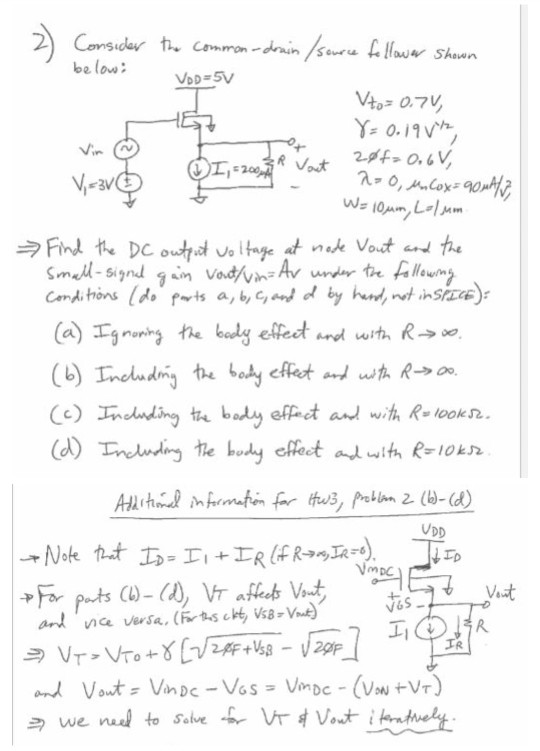 2) Consider the common-drain/source follower shown
below:
VDD=5V
Vin
V1=3V
I1=200μA
R
+
Vout
-
Vto= 0.7V,
γ= 0.19 V^1/2,
2φf= 0.6V,
λ= 0, μnCox=90μA/V²,
W= 10μm, L=1μm.
⇒ Find the DC output voltage at node Vout and the
small-signal gain Vout/Vin=Av under the following
conditions (do parts a, b, c, and d by hand, not in SPICE):
(a) Ignoring the body effect and with R→∞.
(b) Including the body effect and with R→∞.
(c) Including the body effect and with R=100kΩ.
(d) Including the body effect and with R=10kΩ.
Additional information for HW3, problem 2 (b)-(d)
→ Note that ID= I1 + IR (if R→∞, IR=0).
→ For parts (b)-(d), VT affects Vout,
and vice versa. (For this ckt, VSB=Vout)
⇒ VT=VTO+γ[√2φF+VSB - √2φF]
and Vout = VinDC - VGS = VinDC - (VON+VT)
⇒ we need to solve for VT & Vout iteratively.
VDD
ID
VinDC
+
VGS -
Vout
I1
IR
R